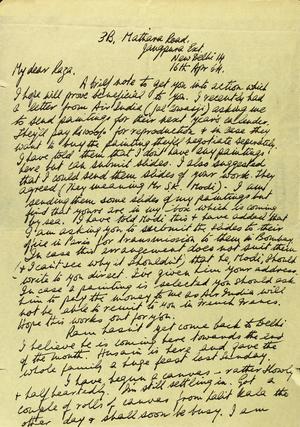 3B, Mathura Road,
Jangpura Ext.
New Delhi 14
16th Apr 64.
My dear Raza,
A brief note to get you into action which
I hope will prove beneficial to you. I recently had
a letter from Air India ( ) asking me
to send paintings for their next year's calendar.
They'll pay for reproduction & in case they
want to buy the painting they'll negotiate separately.
I have told them that I don't have any paintings
here but can submit slides. I also suggested
that I could send them slides of your work. They
agreed (They meaning Mr SK. Modi). I am
sending them some slides of my paintings but
find that yours are in my box which is coming
by sea. I have told Modi this & have added that
I am asking you to submit the slides to their
office in Paris for transmission to them in Bombay.
In case this arrangement does not suit them
& I can't see why it shouldn't, that he, Modi, should
write to you direct. I've given him your address.
In case a painting is selected you should ask
him to pay the money to me as Air India will
not be able to remit to you in French Francs.
Hope this works out for you.
Ram hasn't yet come back to Delhi
I believe he is coming here towards the end
of the month. Husain is here and gave the
whole family a huge feast last Sunday.
I have begun a canvas – rather slowly
& half heartedly. Am still settling in. Got a
couple of rolls of canvas from Lalit Kala the
other day & shall soon be busy. I am